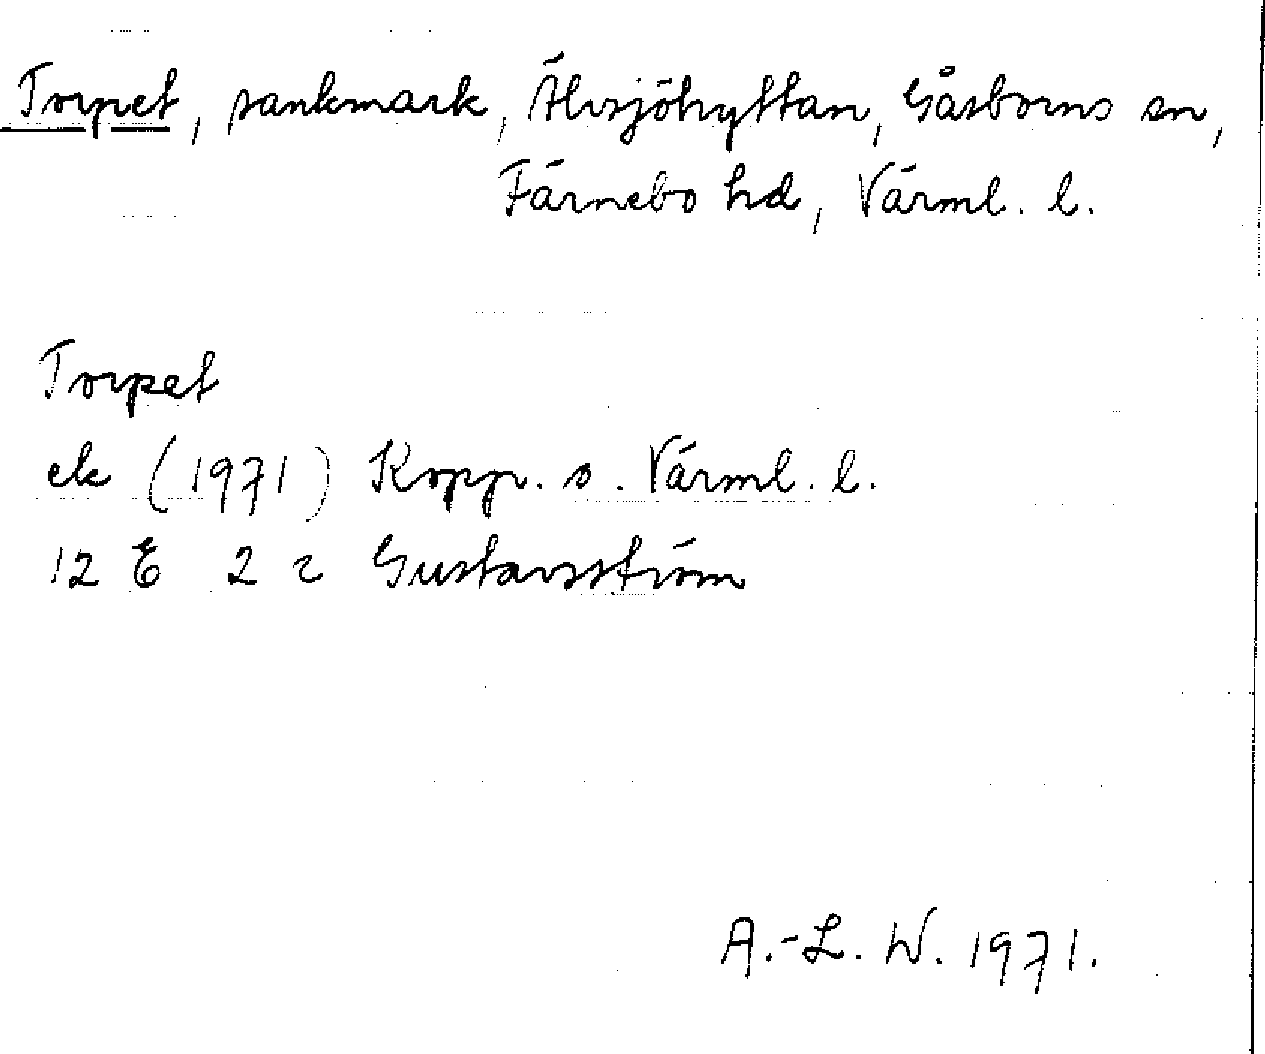 Torpet, sankmark, Älvsjöhyttan, Gåsborns sn,
Färnebo hd, Värml. l.
Torpet
ek (1971) Kopp. o. Värml. l.
12 E 2 c Gustavsström
A.-L. W. 1971.